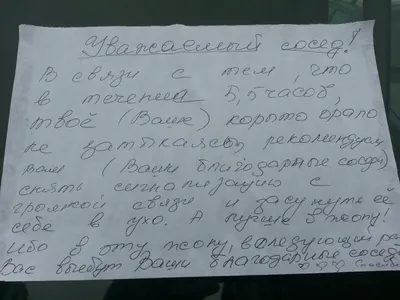 Уважаемый сосед!
В связи с тем, что
в течении 5,5 часов,
твоё (Ваше) корыто орало
не затыкаясь, рекомендуем
Вам (Ваши благодарные соседи)
снять сигнализацию с
громкой связи и засунуть её
себе в ухо. А лучше в жопу!
Ибо в эту жопу, в следующий раз
Вас выебут Ваши благодарные соседи